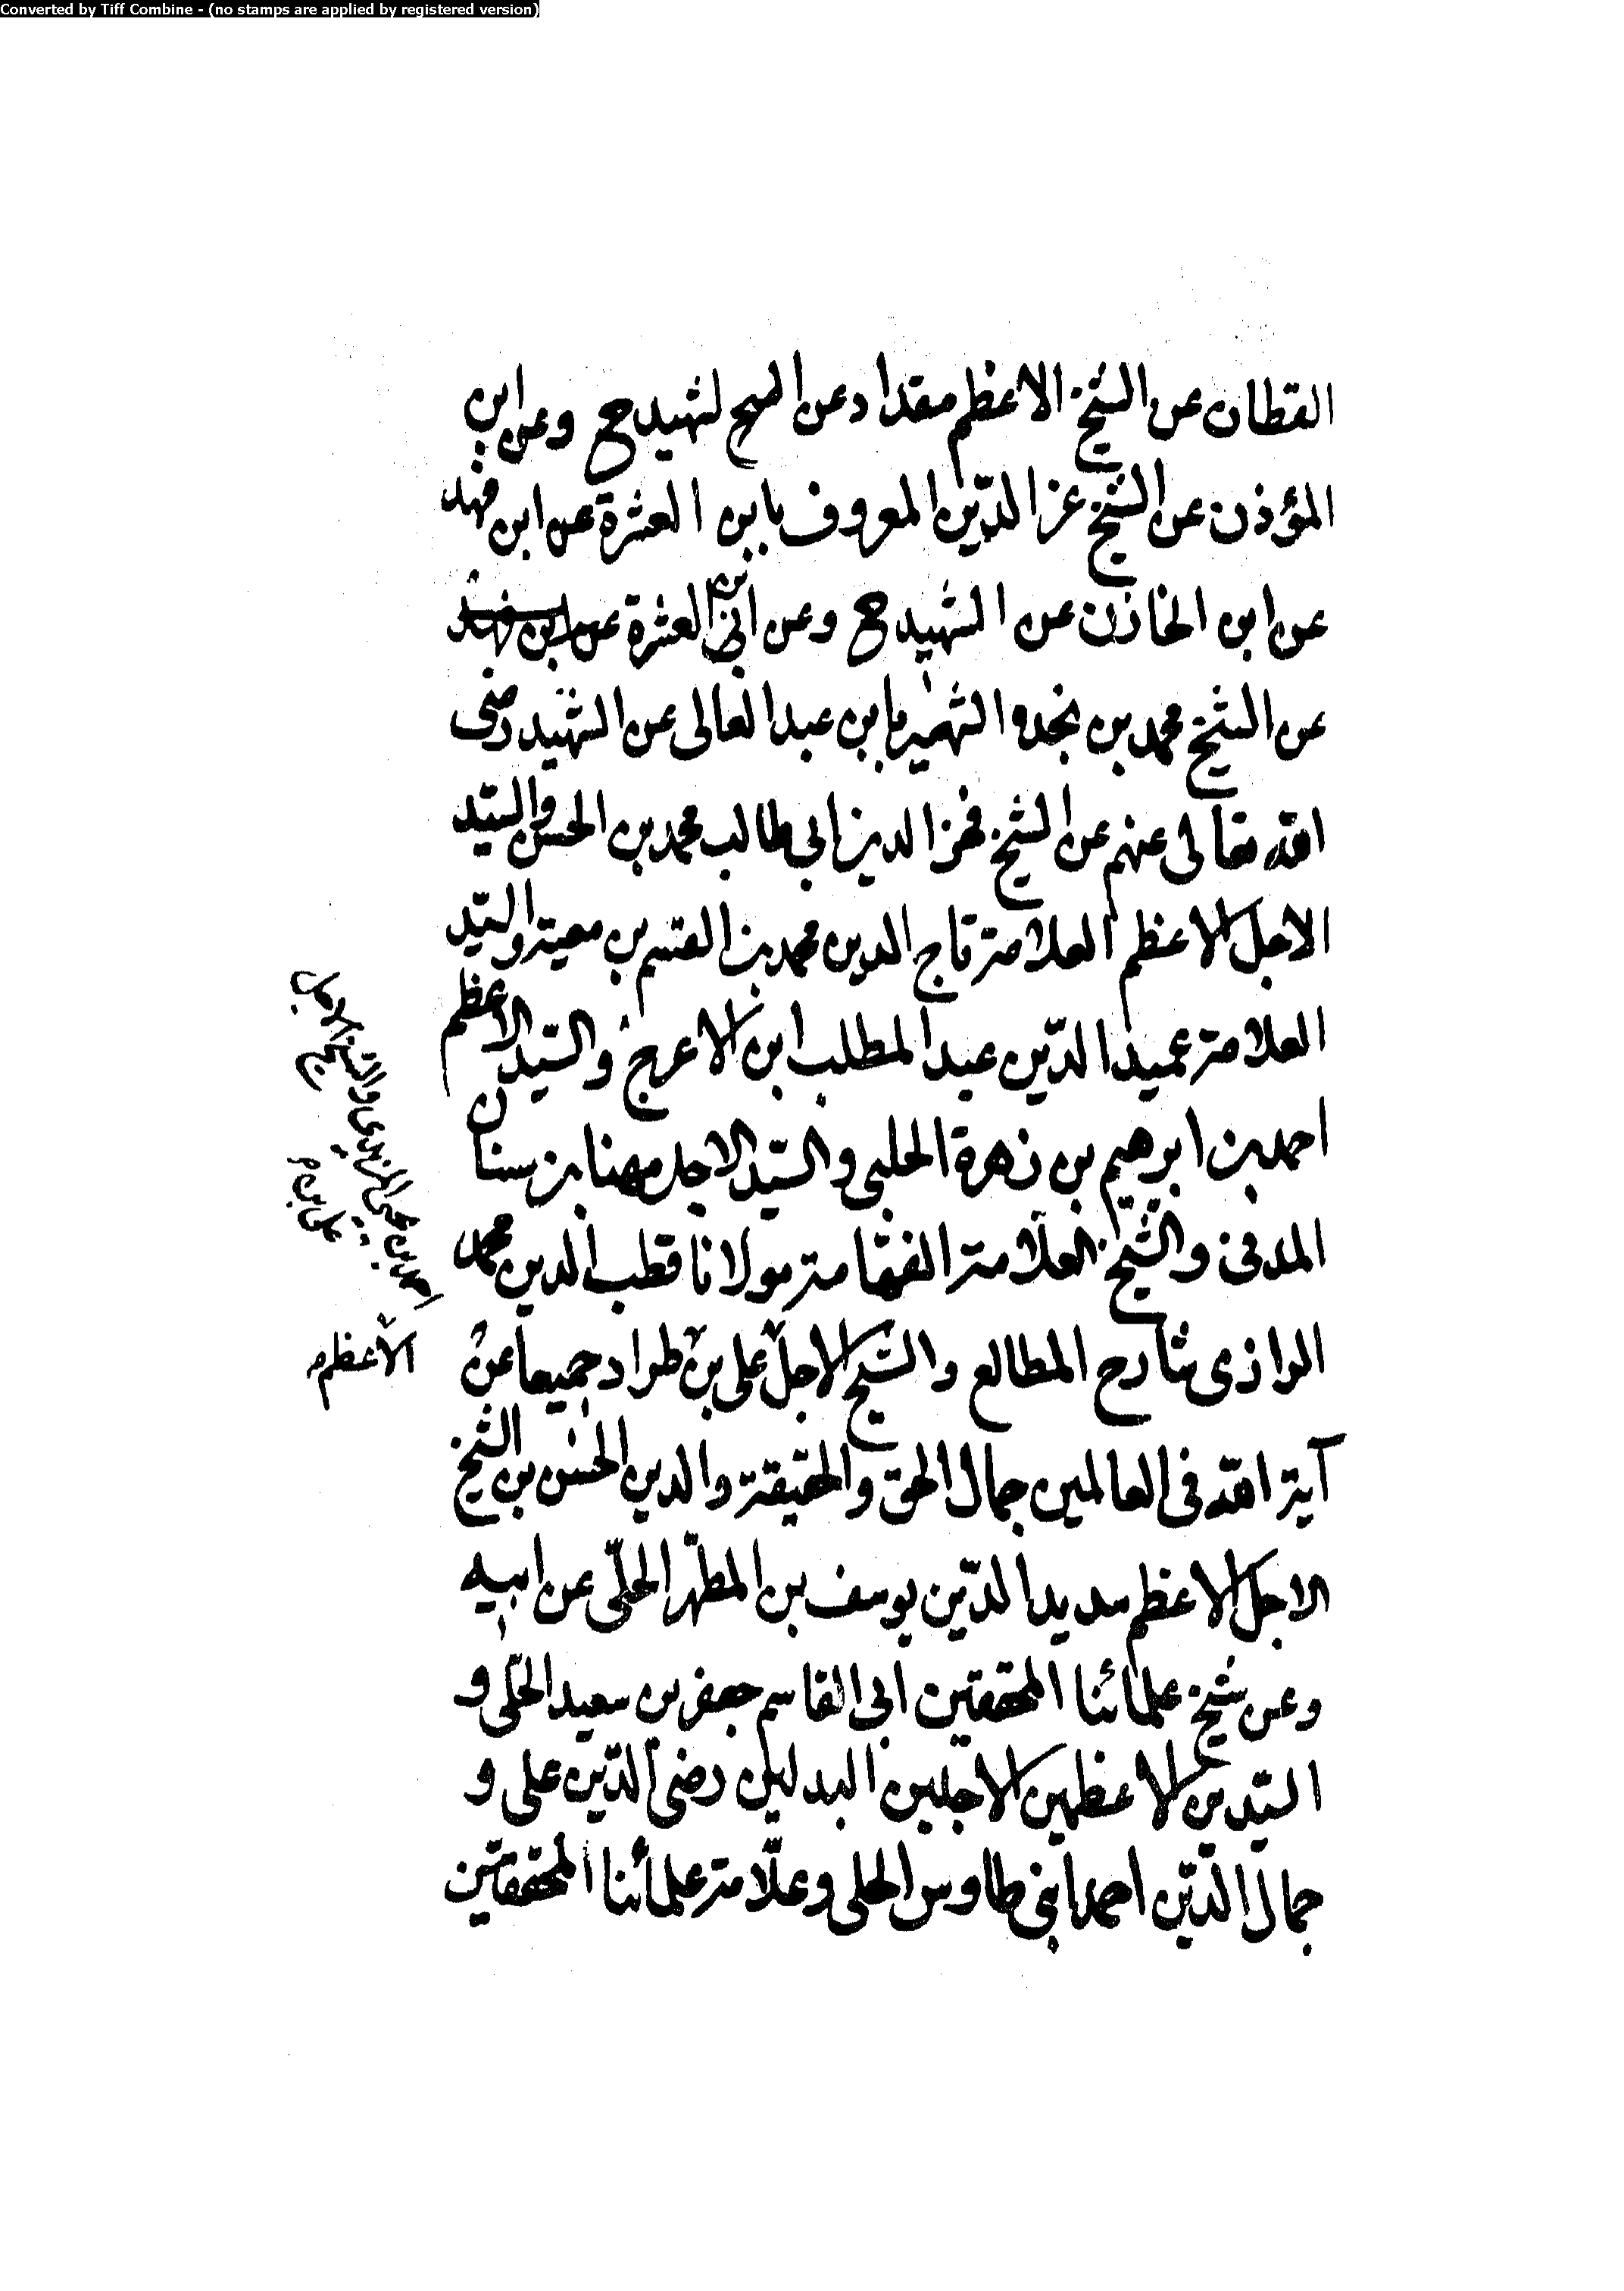 Converted by Tiff Combine - (no stamps are applied by registered version)
القطان عن الشيخ الاعظم مقداد عن الشيخ الشهيد ح وعن ابن
المؤذن عن الشيخ عز الدّين المعروف بابن العشرة عن ابن فهد
عن ابن الخازن عن الشهيد ح وعن ابن العشرة عن ابن فهد
عن الشيخ محمد بن نجده الشهير بابن عبد العالى عن الشهيد رضى
الله تعالى عنهم عن الشيخ فخر الدين ابي طالب محمد بن الحسن والسيّد
الاجل الاعظم العلامة تاج الدين محمد بن القسم بن معية والسيّد
العلامة عميد الدّين عبد المطلب ابن الاعرج والسيّد الاعظم
احمد بن ابرهيم بن زهرة الحلبى والسيّد الاجل مهنا بن سنان
المدنى والشيخ العلامة الفهامة مولانا قطب الدين محمد
الرازى شارح المطالع والشيخ الاجل على بن طراد جميعا عن
آية الله فى العالمين جمال الحق والحقيقة والدين الحسن بن الشيخ
الاجل الاعظم سديد الدّين يوسف بن المطهّر الحلّى عن ابيه
وعن شيخ علمائنا المحققين ابى القاسم جعفر بن سعيد الحلّى و
السيّدين الاعظمين الاجلين البدلين رضى الدّين على و
جمال الدّين احمد ابنى طاوس الحلى وعلّامة علمائنا المحققين
الاعظم